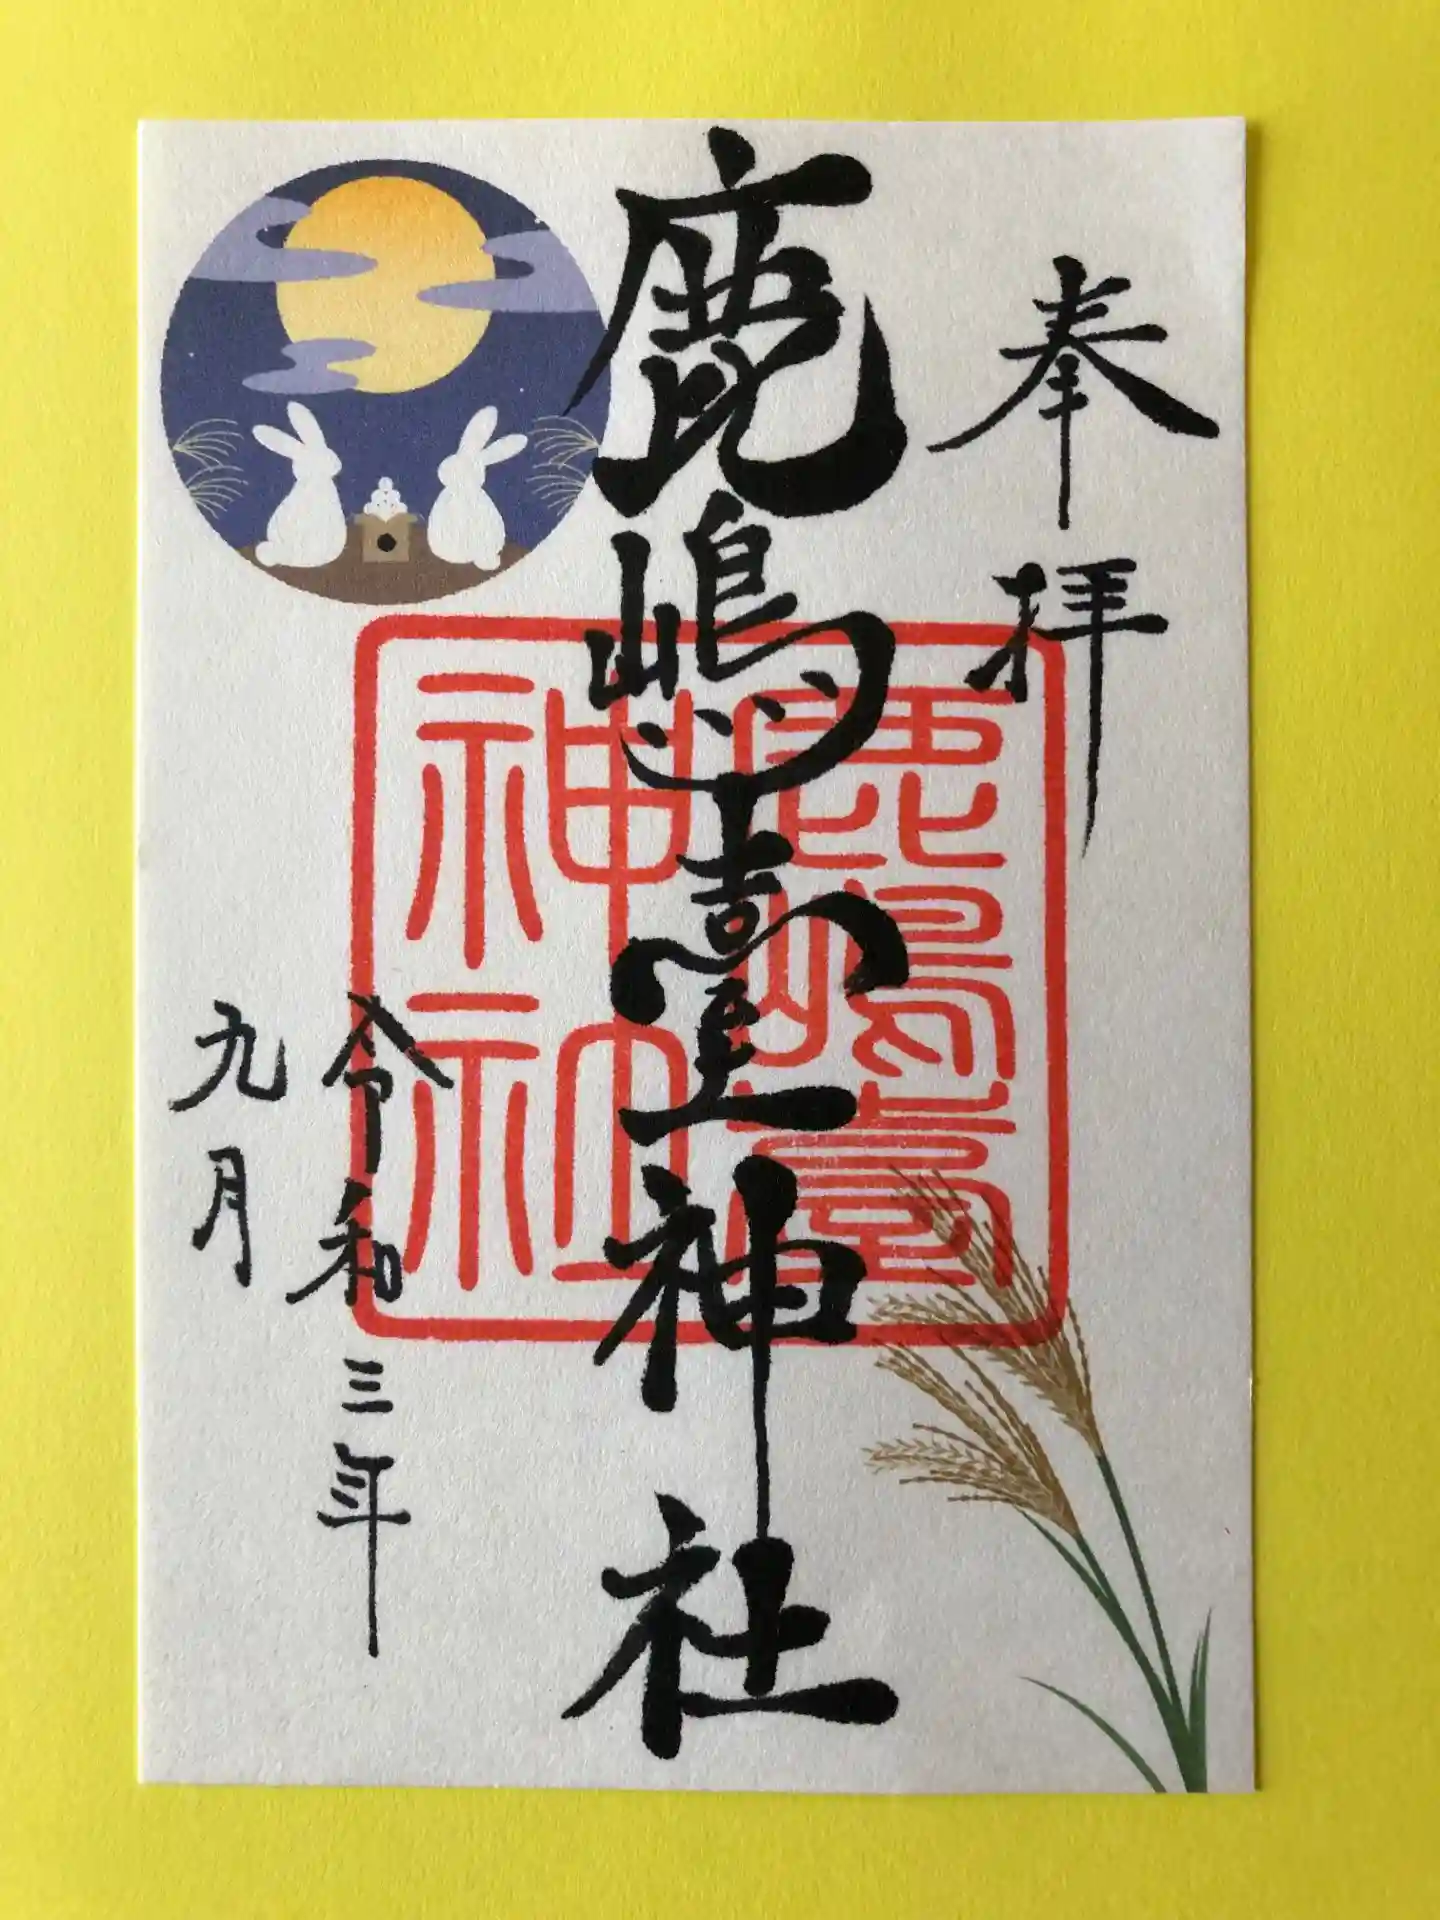 奉拝
鹿嶋臺神社
鹿嶋臺
神社
令和三年
九月